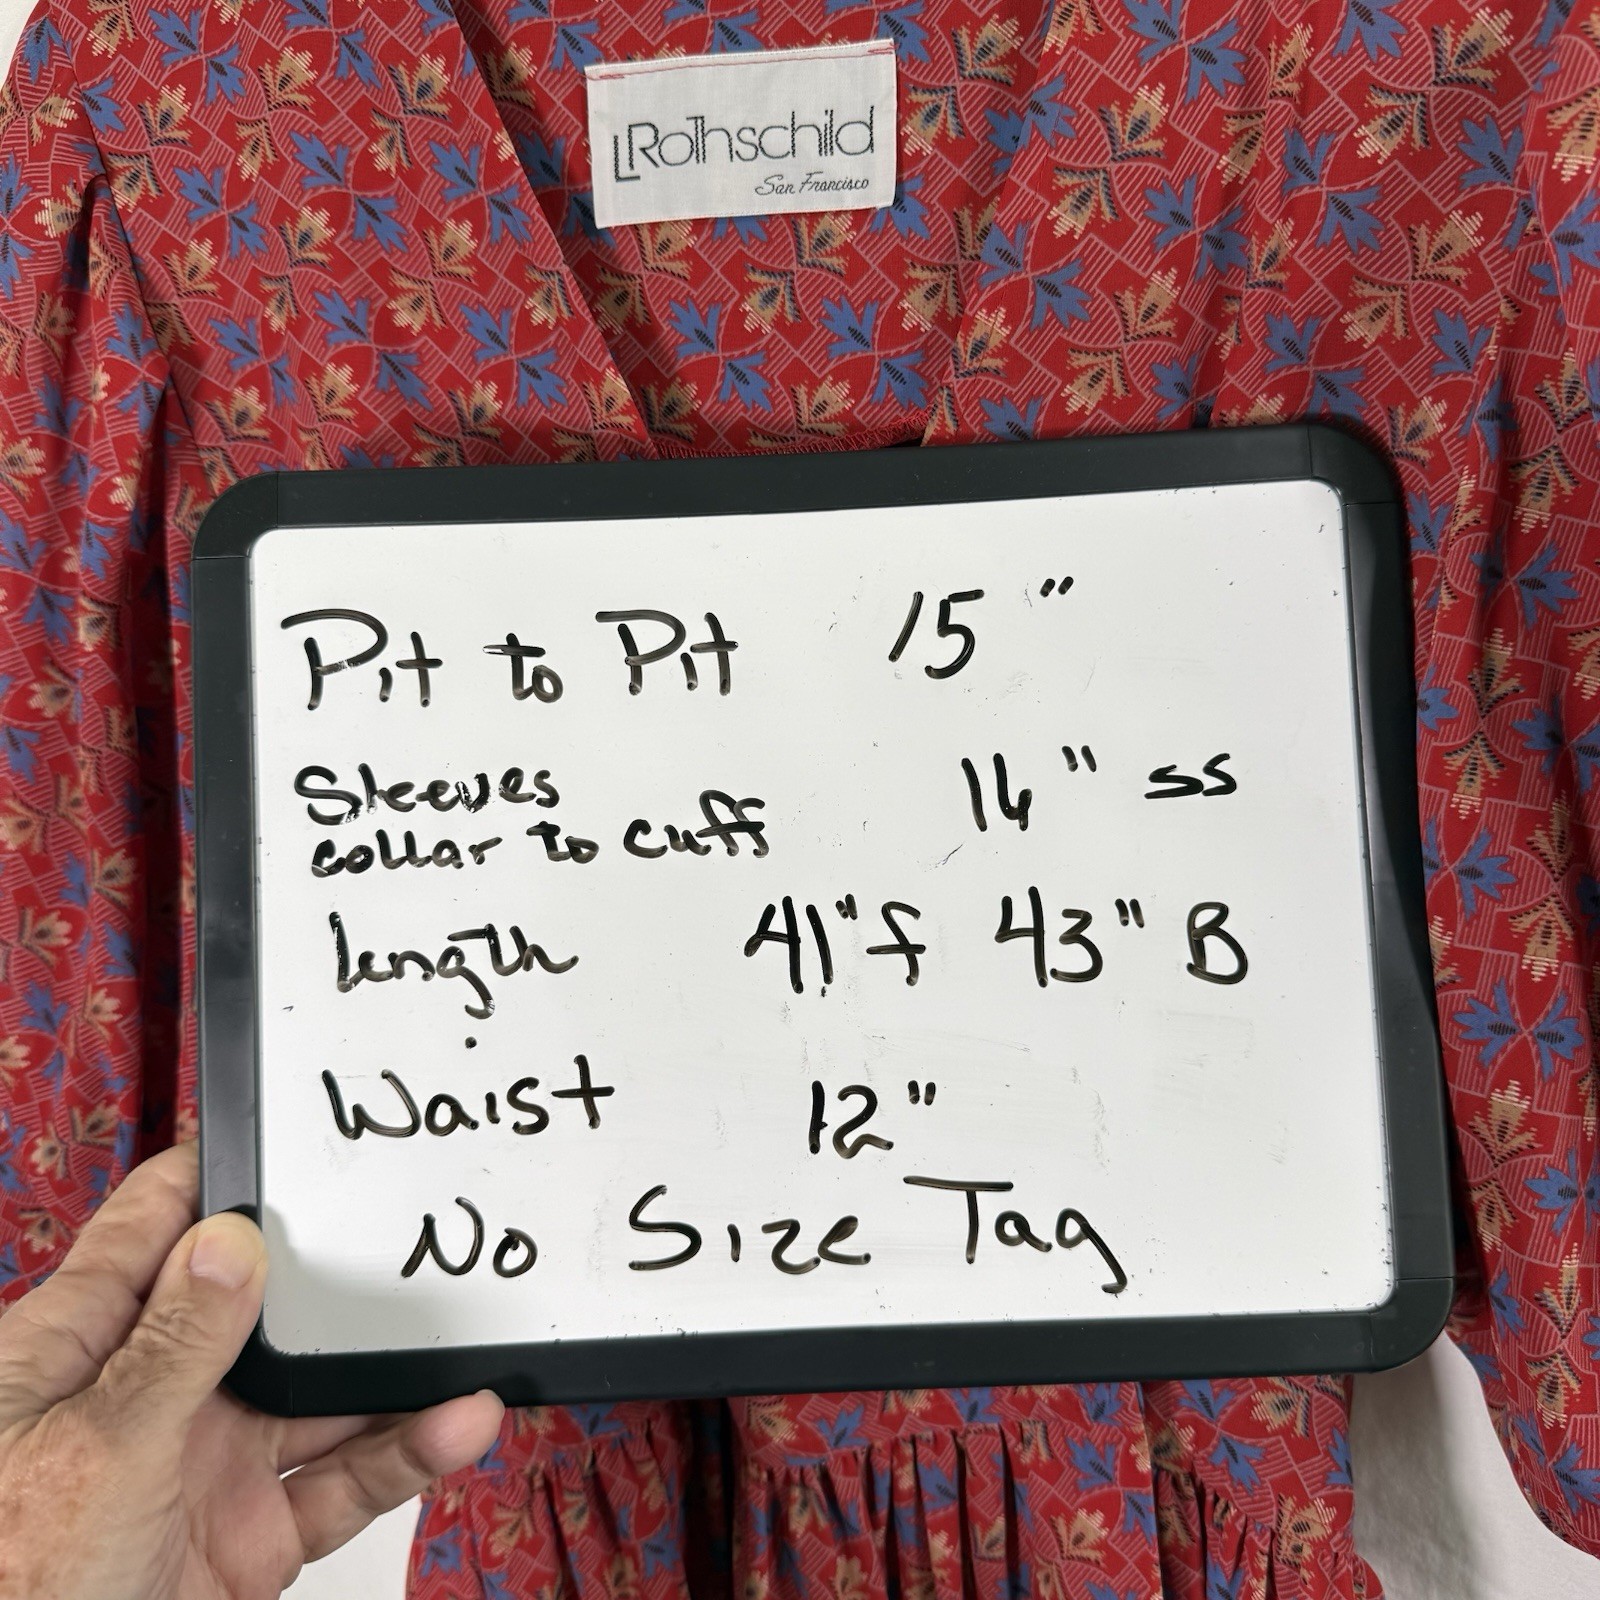 LRothschild
San Francisco
Pit to Pit 15"
Sleeves 16" ss
collar to cuff
Length 41" f 43" B
Waist 12"
No Size Tag